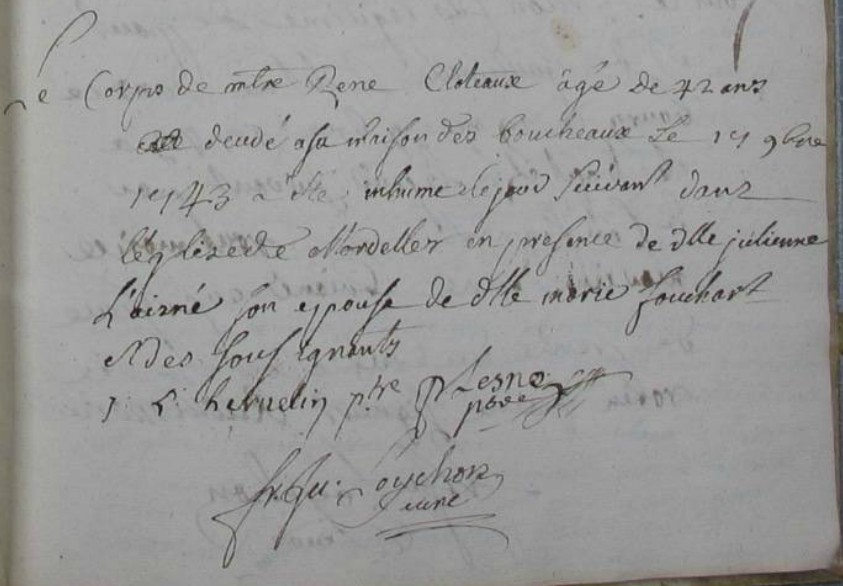 Le Corps de mtre Rene Cloteaux âgé de 42 ans
decedé a sa maison des boucheaux Le 17 9bre
1743 a été inhume le jour suivant dans
l'eglise de Mordelles en presence de dlle julienne
L'aisné son epouse de dlle marie fouchart
et des sousignants
J L hervelin ptre Lesne
ptre
Jeune